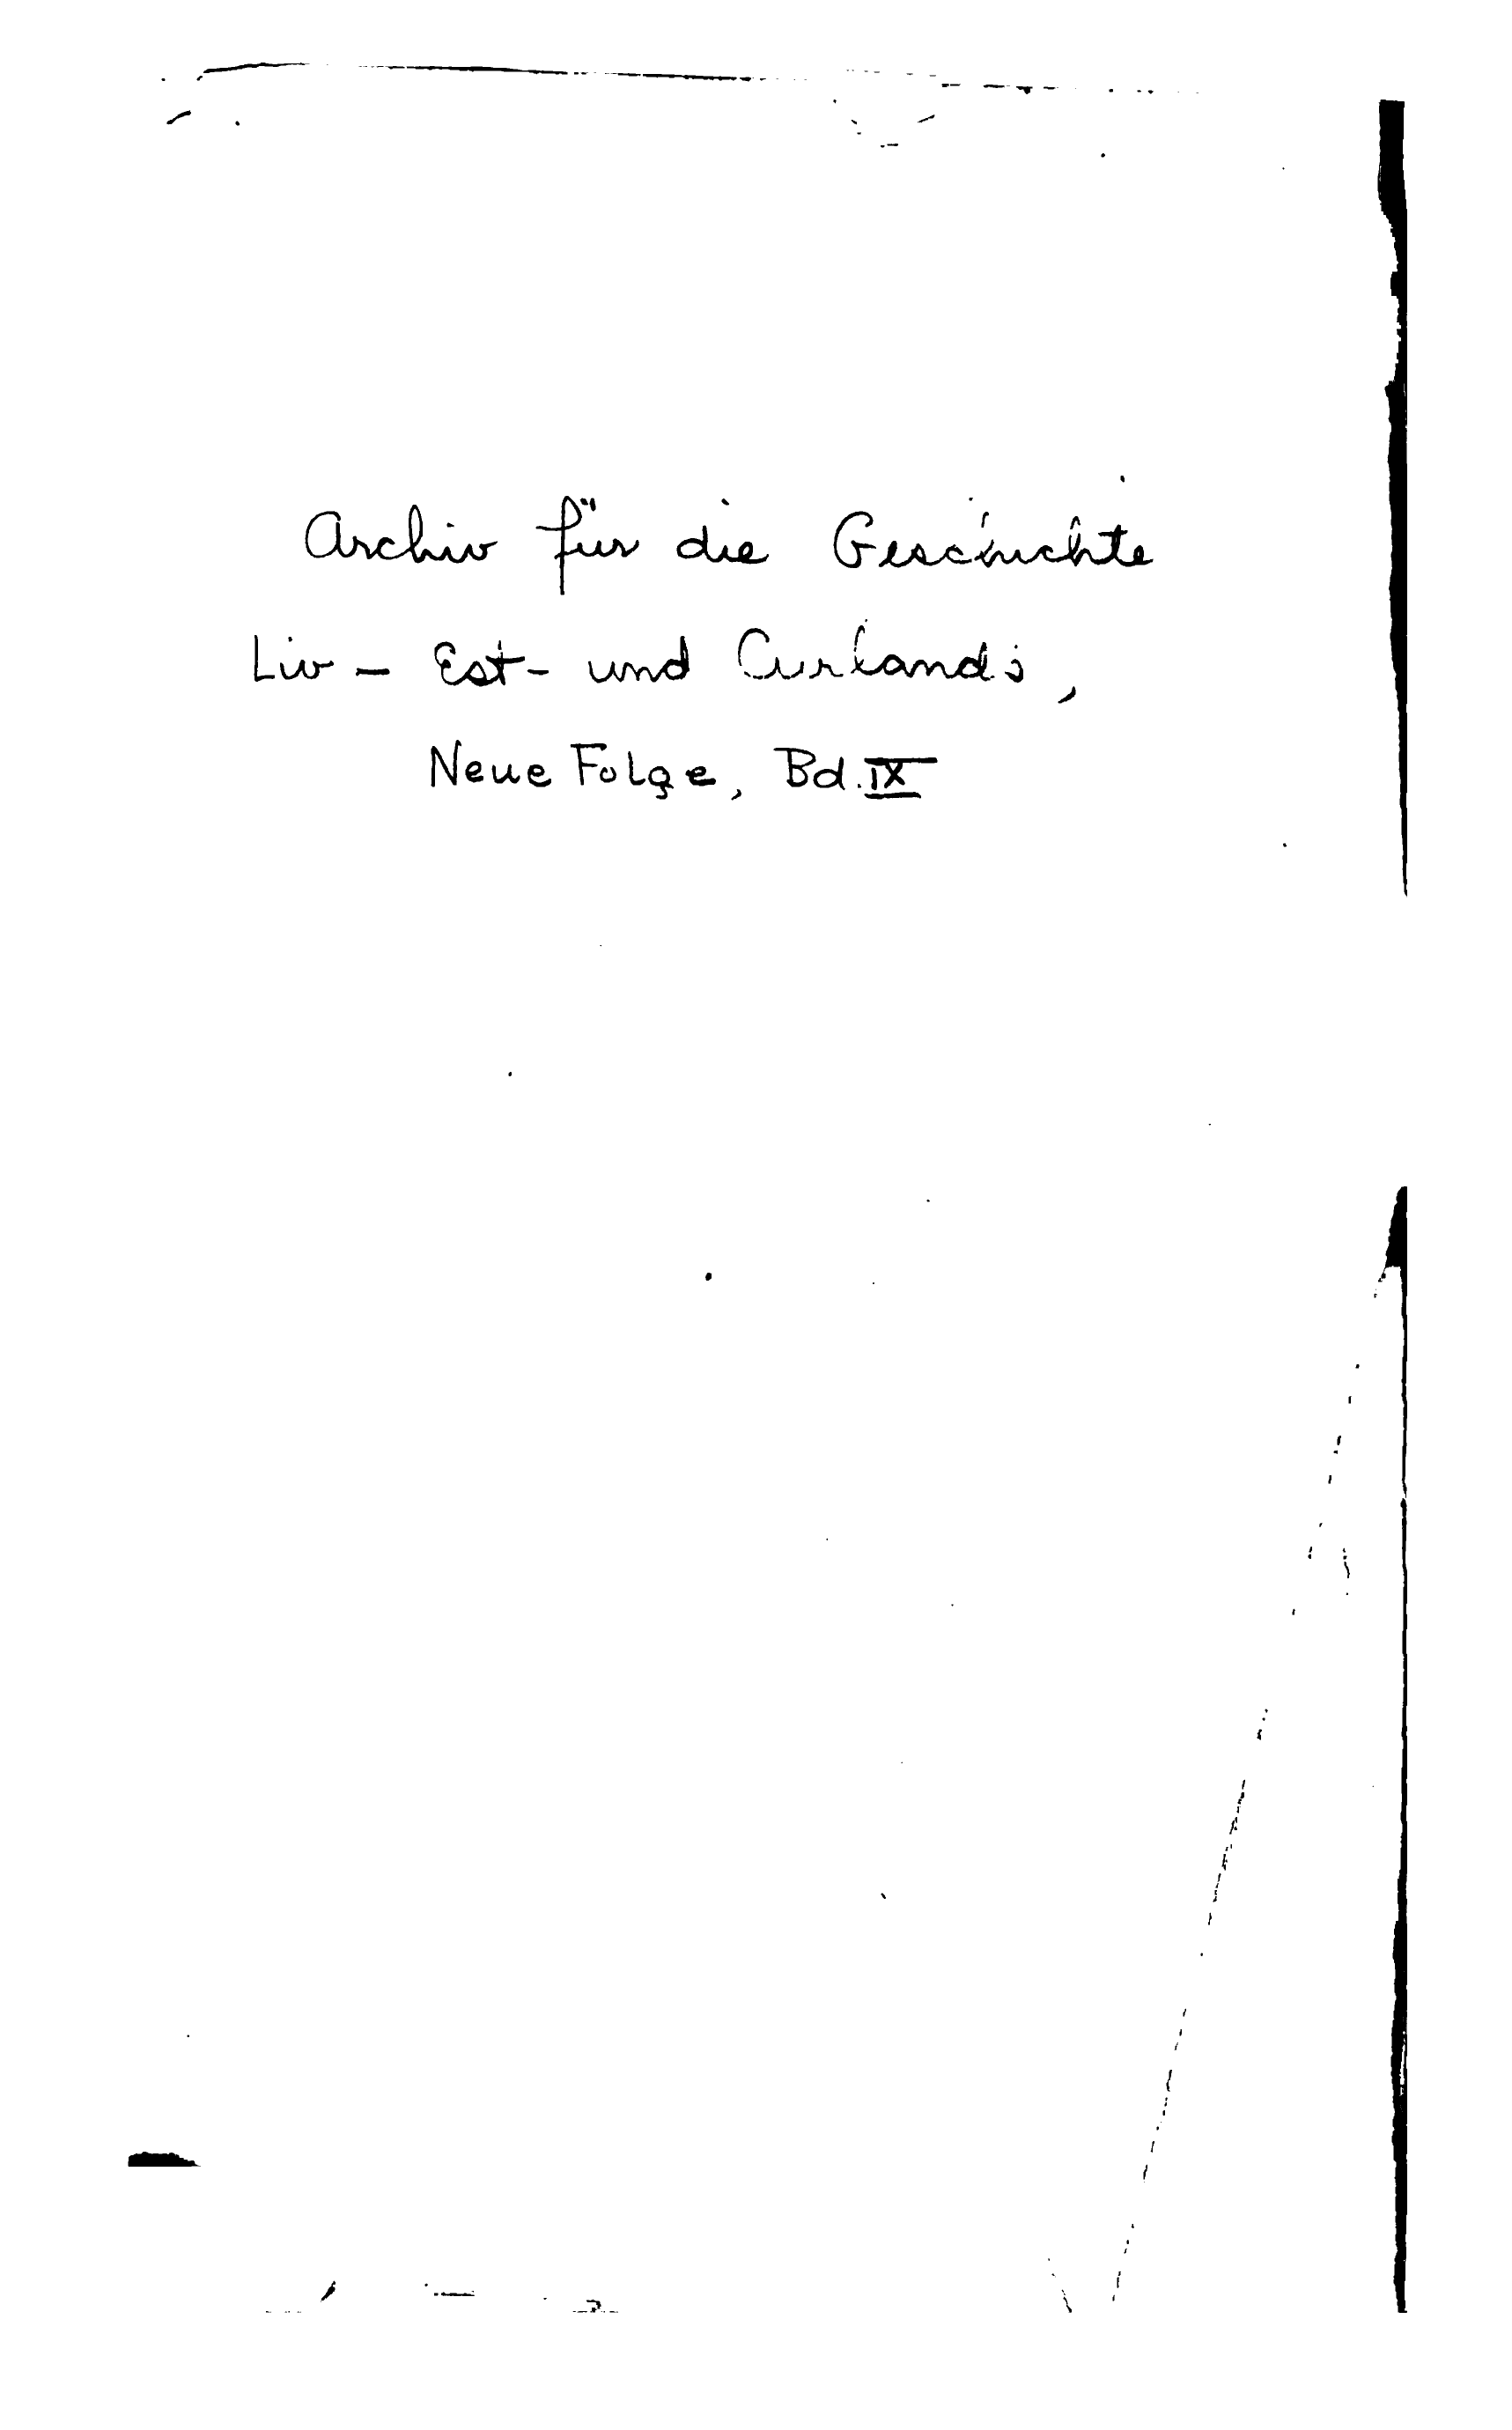 Archiv für die Geschichte
Liv - Est- und Curlands,
Neue Folge, Bd. IX